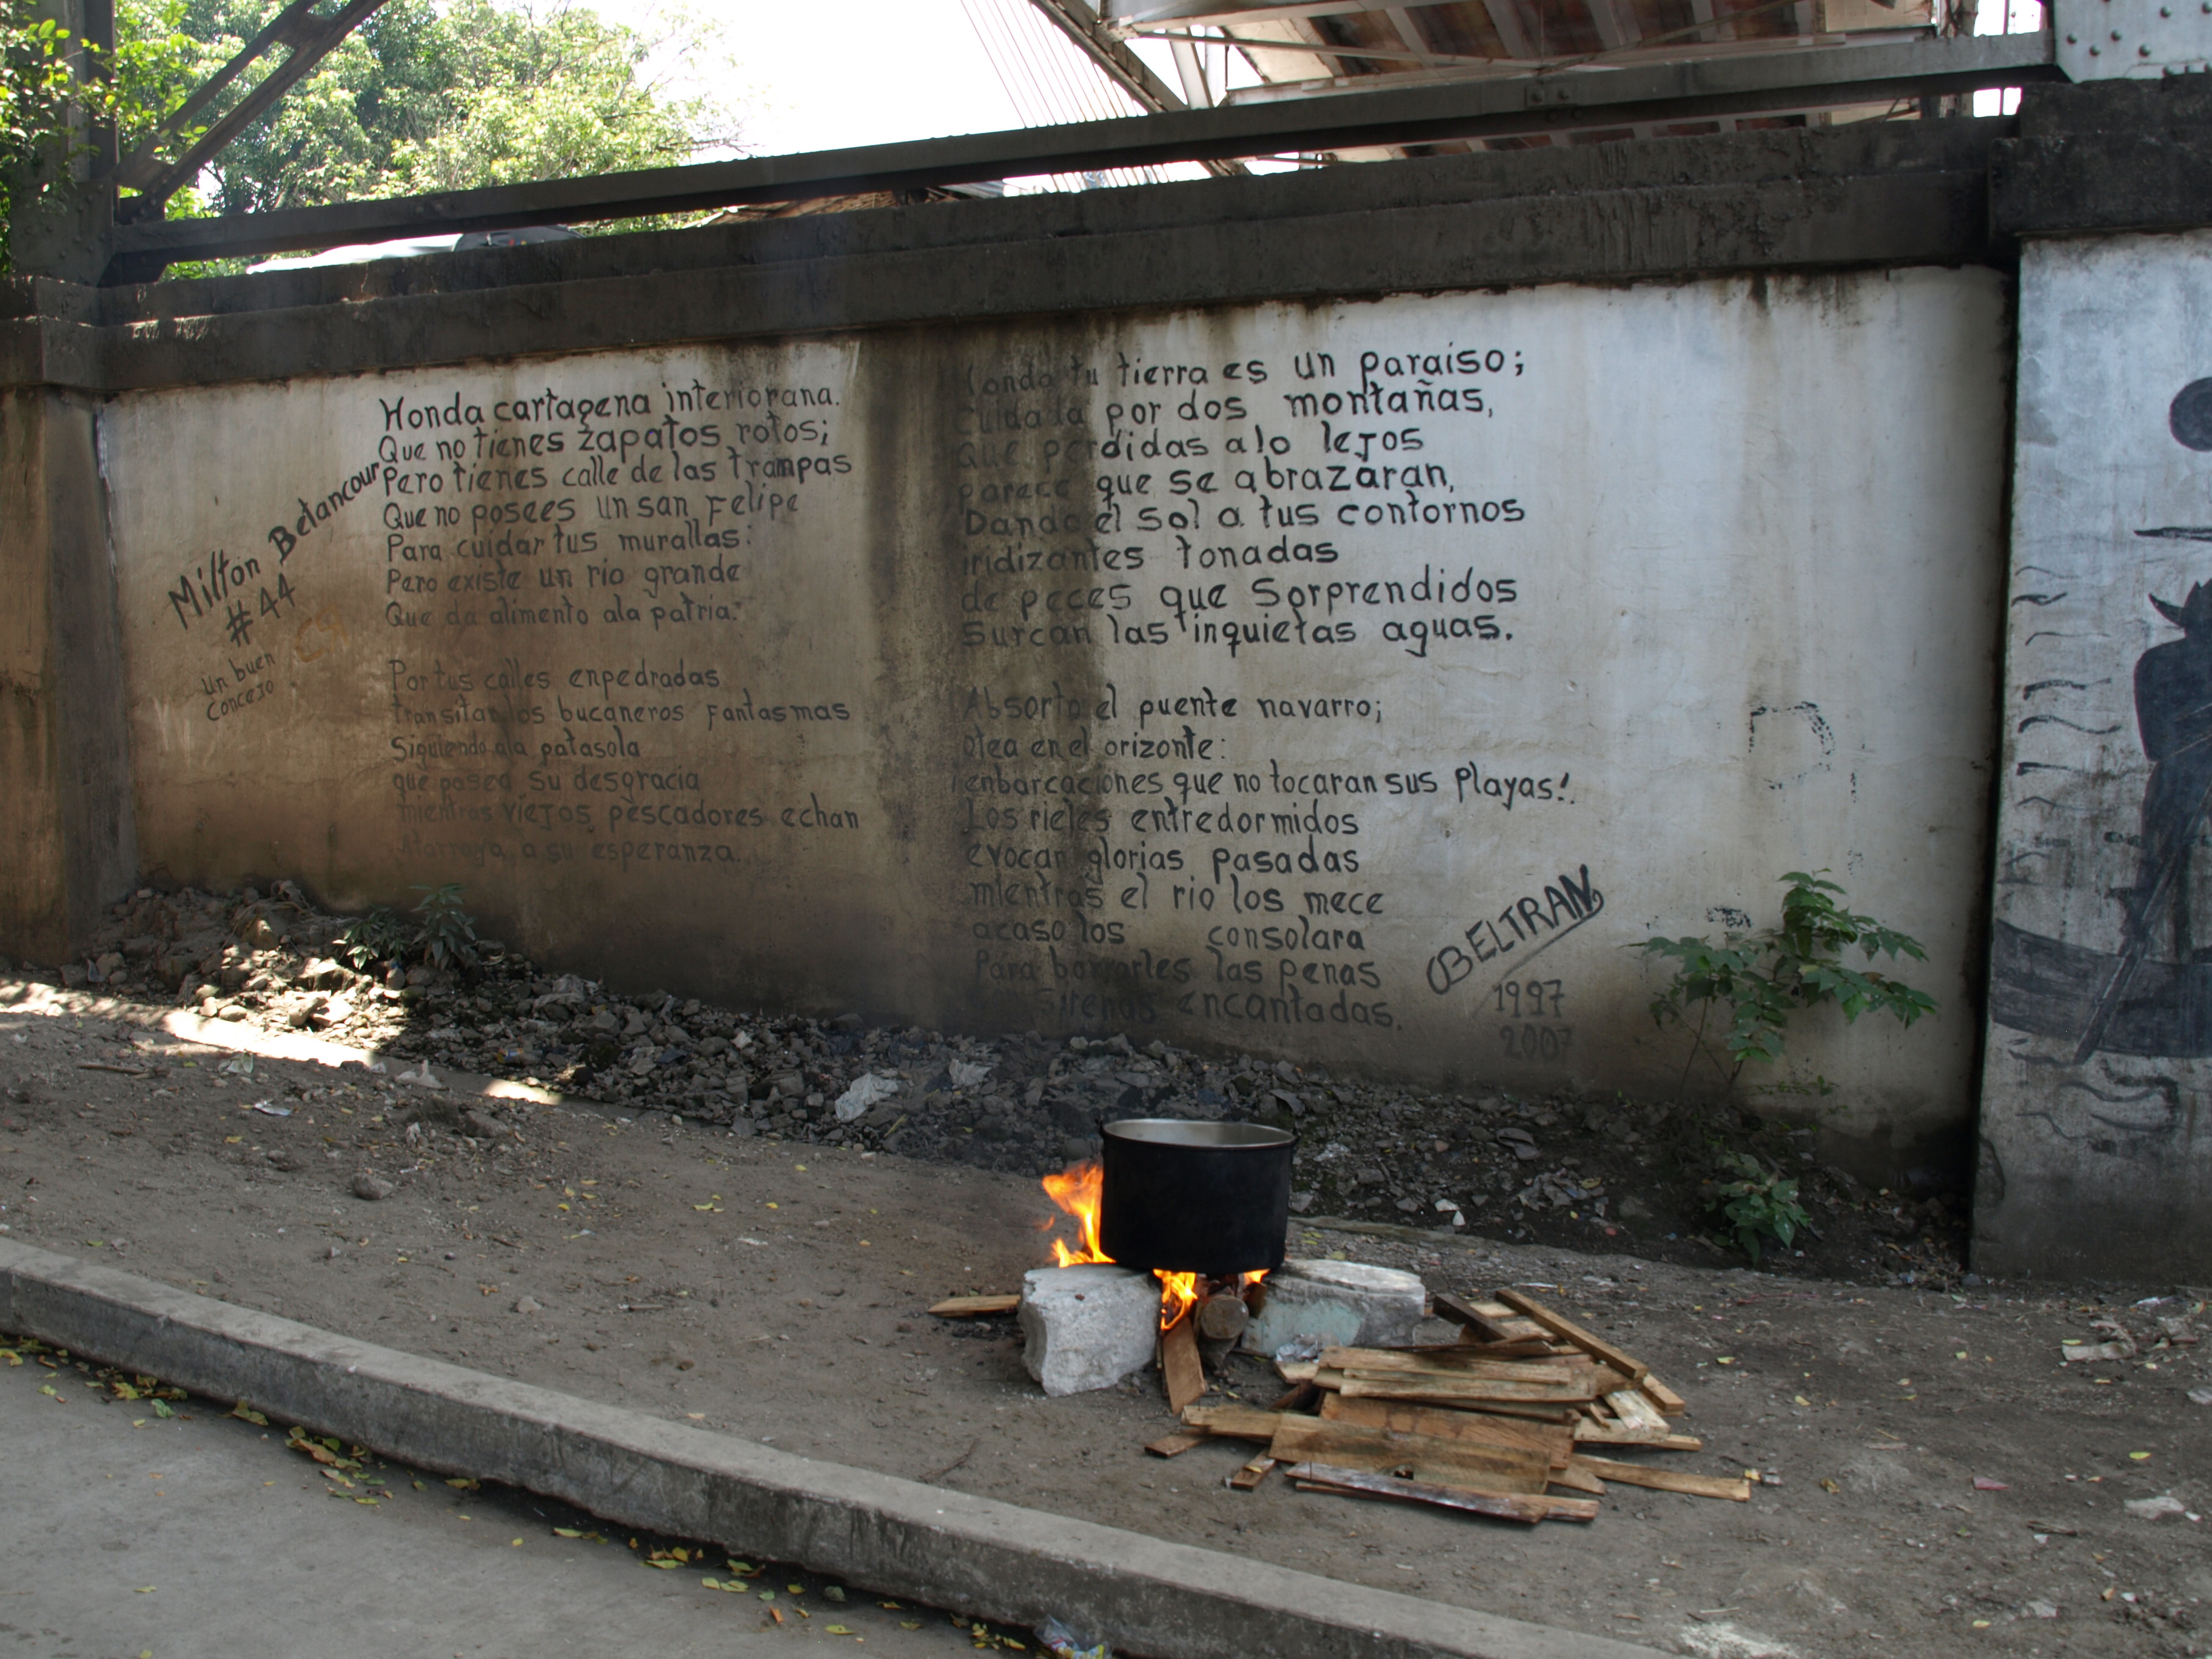 Honda cartagena interiorana.
Que no tienes zapatos rotos;
Pero tienes calle de las trampas
Que no posees un san Felipe
Para cuidar tus murallas:
Pero existe un rio grande
Que da alimento ala patria.
Por tus calles enpedradas
transitan los bucaneros fantasmas
Siguiendo ala patasola
que pasea su desgracia
mientras viejos pescadores echan
Atarraya, a su esperanza.
Milton Betancour
#44
un buen
concejo
Honda tu tierra es un paraiso;
Cuidada por dos montañas,
Que perdidas alo lejos
parece que se abrazaran,
Dando el sol a tus contornos
iridizantes tonadas
de peces que Sorprendidos
Surcan las inquietas aguas.
Absorto el puente navarro;
otea en el orizonte:
enbarcaciones que no tocaran sus Playas!
Los rieles entredormidos
evocan glorias pasadas
mientras el rio los mece
acaso los consolara
Para borrarles las penas
Sirenas encantadas.
BELTRAN
1997
2007